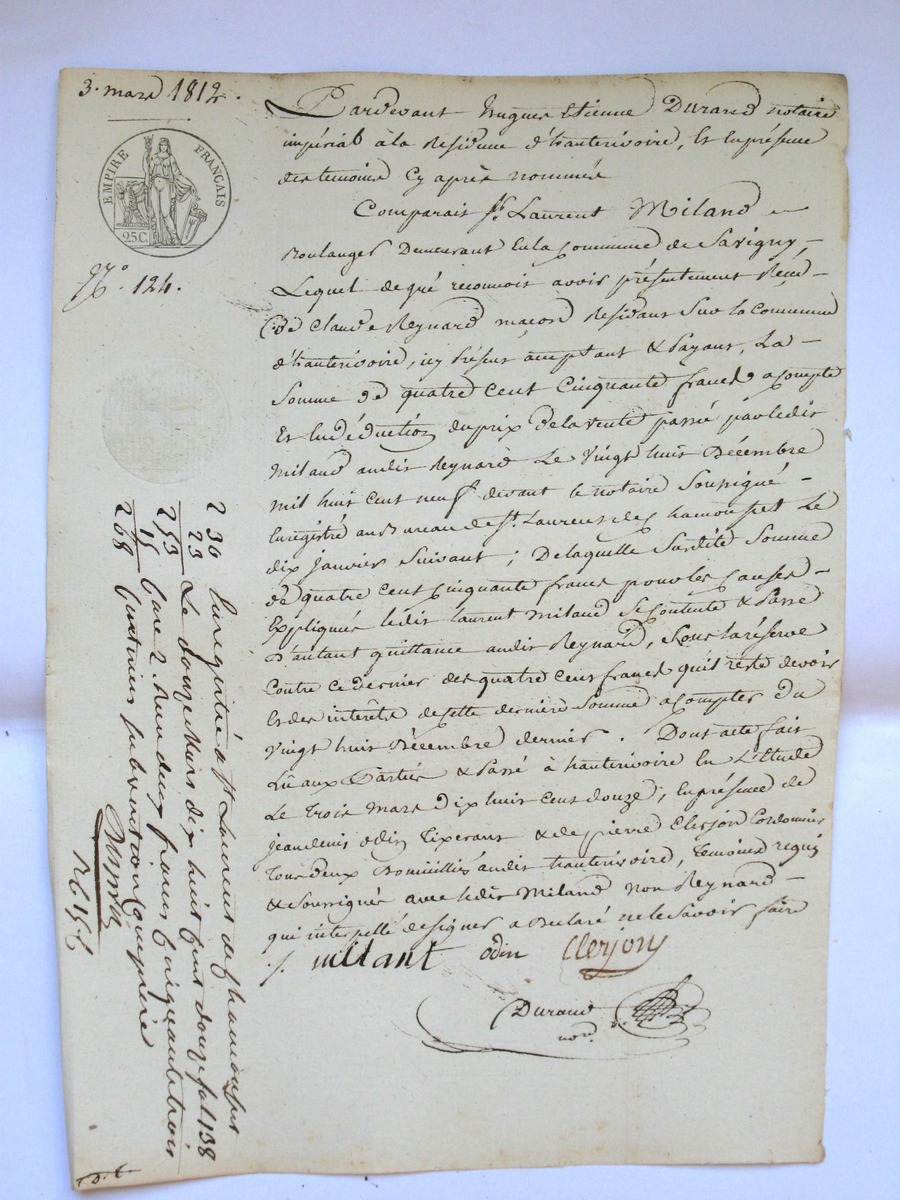 3. mars 1812.
EMPIRE FRANÇAIS
25C
N.o 124.
Pardevant hugues Etienne Durand notaire
impérial à la Residence d'hauterivoire, Et En présence
des temoins Cy après nommés
Comparait St. Laurent Miland
Boulanger Demeurant En la Commune de Savigny,
Lequel de gré reconnoit avoir présentement Reçu
De Claude Reynard maçon Residant Sur la Commune
d'hauterivoire, icy Présent acceptant & Payant, La
Somme de quatre Cent Cinquante francs acompte
Et En déduction du prix de la vente passé par ledit
Miland audit Reynard Le Vingt huit Décembre
mil huit Cent neuf devant le notaire Soussigné
Enregistré au Bureau de St. Laurent de Chamousset Le
dix Janvier Suivant ; De laquelle Susdite Somme
de quatre Cent Cinquante francs pour les Causes
Expliquées ledit laurent Miland Se Contente & Passe
D'autant quittance audit Reynard, Sous la réserve
Contre ce dernier des quatre Cent francs qu'il reste devoir
Et des interêts de Cette dernière Somme a Compter du
Vingt huit Décembre dernier. Dont acte fait
Lû aux Parties & Passé à hauterivoire En L'étude
Le trois mars dix huit Cent douze, En présence de
jean denis odin tixerant & de pierre Clerjon Cordonnier
tous deux Domiciliés audit hauterivoire, temoins requis
& Soussignés avec ledit Miland non Reynard
qui interpellé de signer a Déclaré ne le Savoir faire
millant odin Clerjon
Durand
not.
230 Enregistré à St Laurent de Chamousset
23 Le douze Mars dix huit Cent douze fol 138
253 Case 2. Reçu deux francs Cinquante trois
15 Centimes Subvention Comprise
268
R 15 C